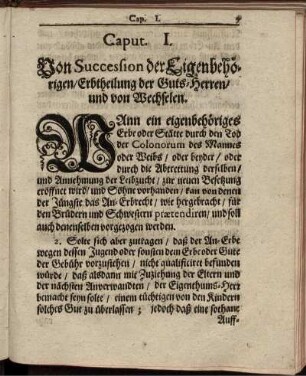 Cap. I.
Caput. I.
Von Succession der Eigenbehö-
rigen/Erbtheilung der Guts-Herren/
und von Wechselen.
WAnn ein eigenbehöriges
Erbe oder Stätte durch den Tod
der Colonorum des Mannes
oder Weibs / oder beyder / oder
durch die Abtrettung derselben/
und Annehmung der Leibzucht/ zur neuen Besetzung
eröffnet wird/ und Söhne vorhanden / kan von denen
der Jüngste das An-Erbrecht / wie hergebracht / für
den Brüdern und Schwestern prætendiren/ und soll
auch denenselben vorgezogen werden.
2. Solte sich aber zuttagen / daß der An-Erbe
wegen dessen Jugend oder sonsten dem Erbe oder Gute
der Gebühr vorzustehen / nicht qualificiret befunden
würde / daß alsdann mit Zuziehung der Eltern und
der nächsten Anverwandten / der Eigenthums-Herr
bemacht seyn solte / einem tüchtigen von den Kindern
solches Gut zu überlassen ; jedoch daß eine sothane
Auff-